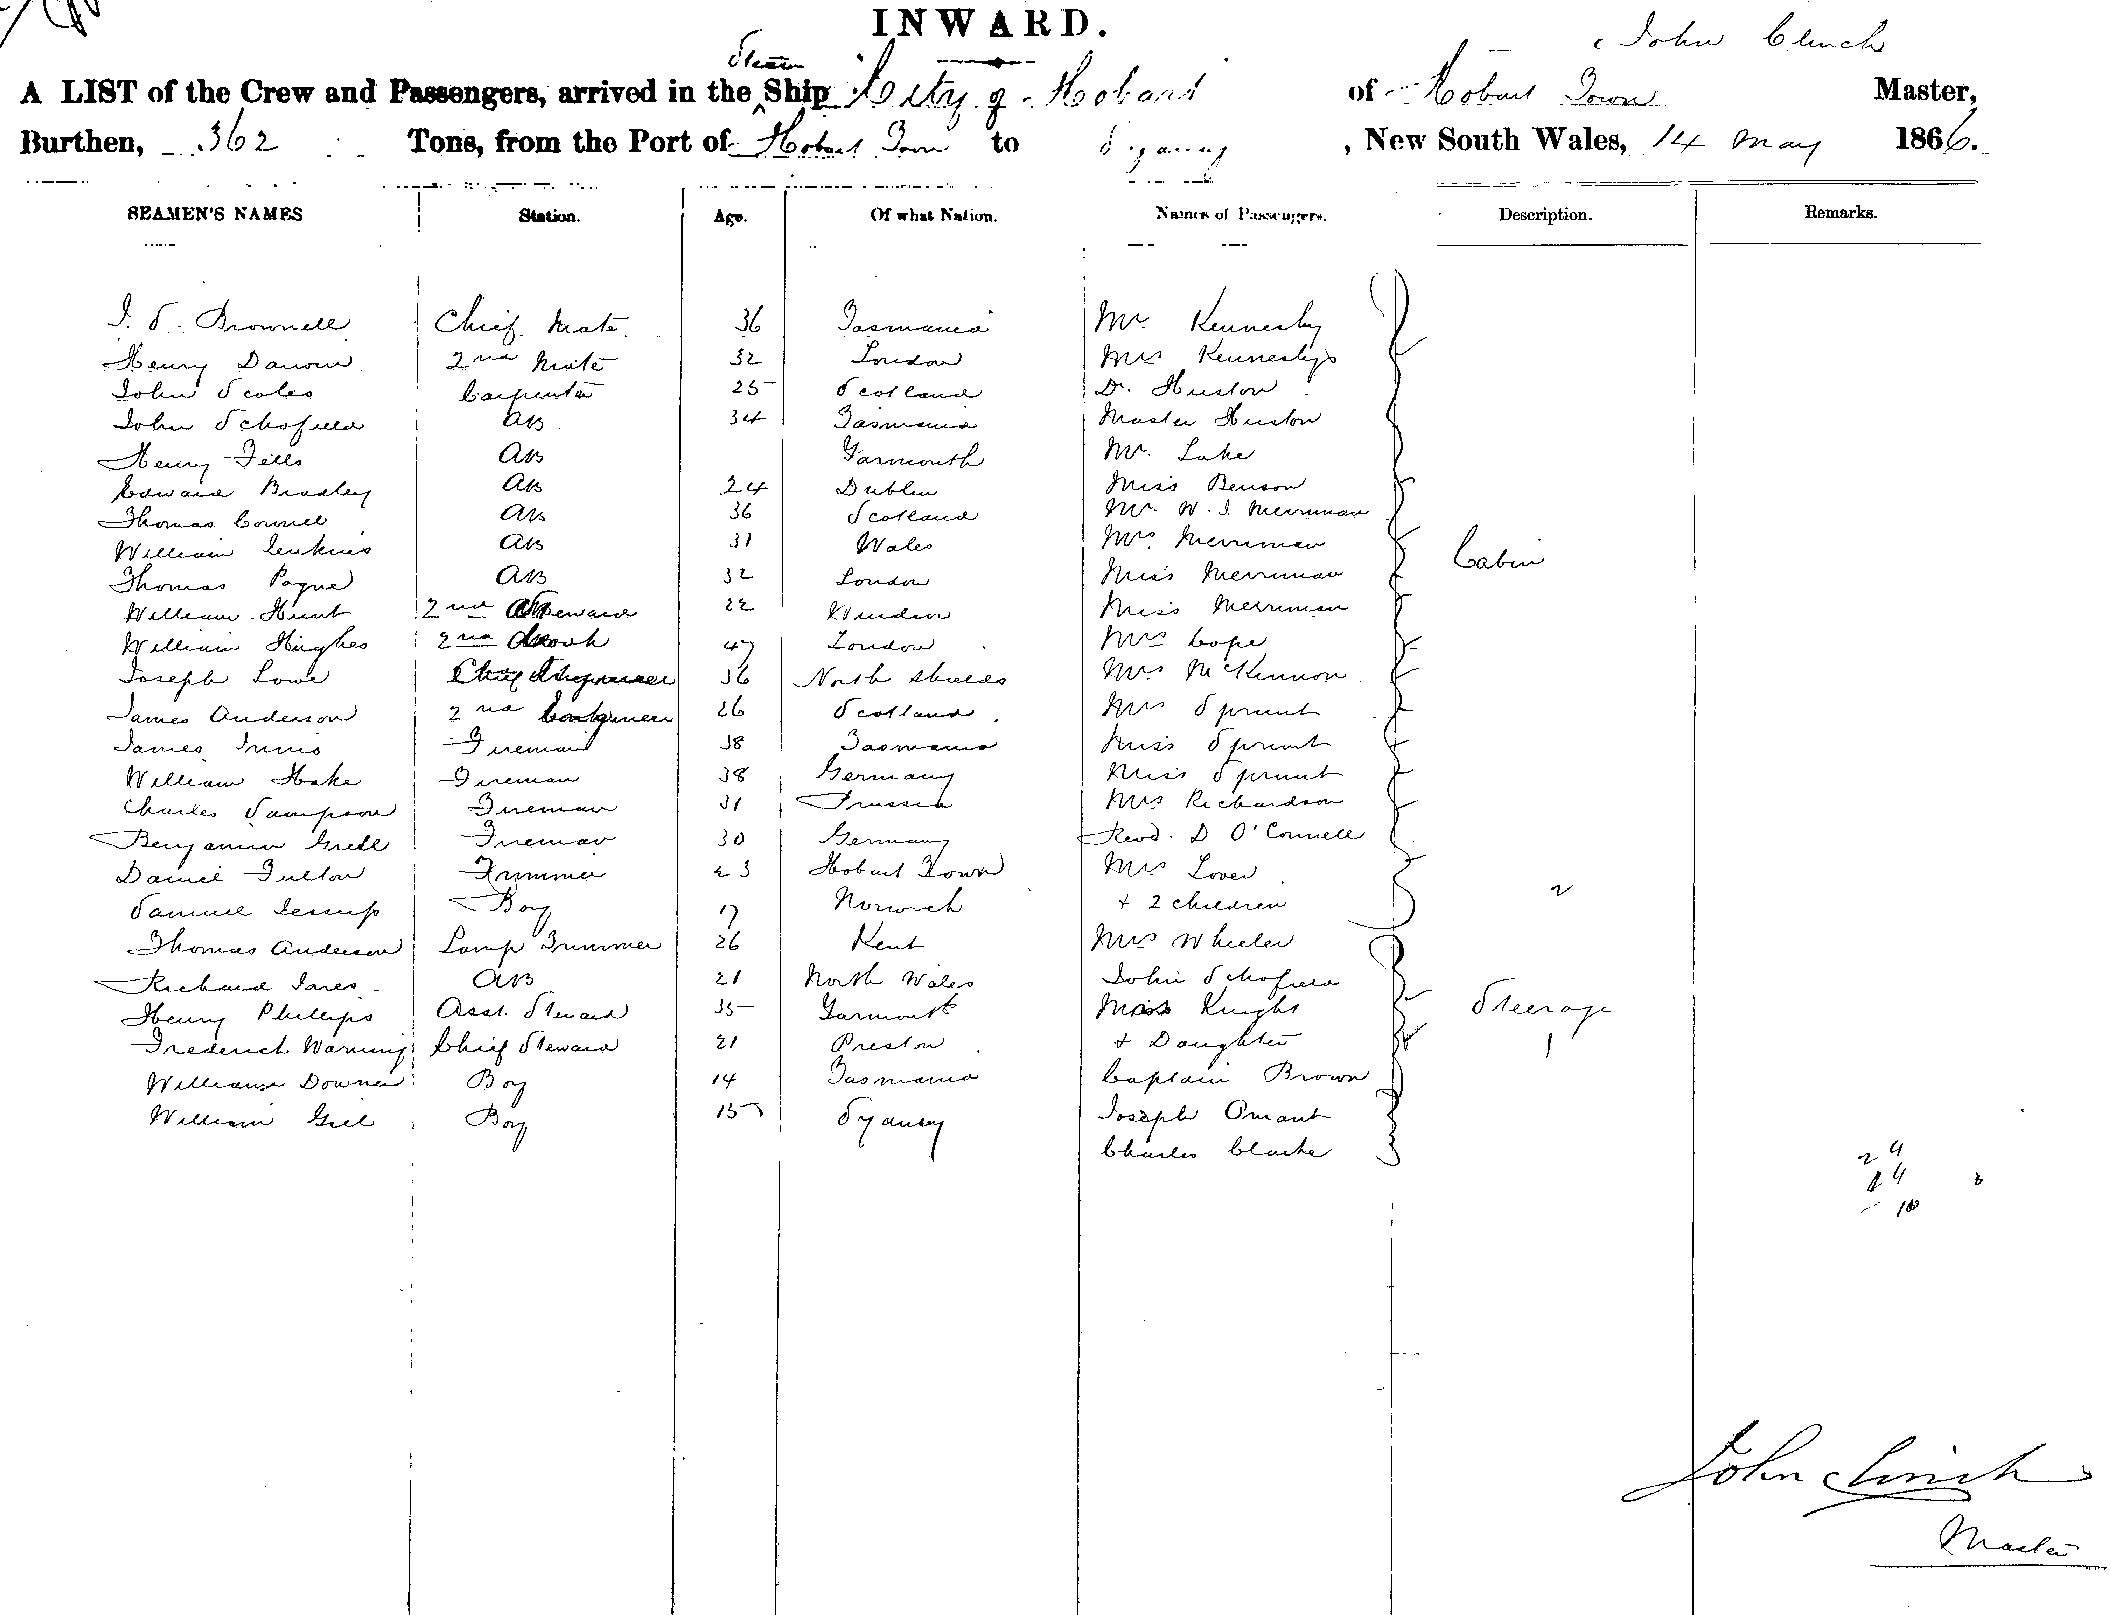 INWARD.
John Clinch
Steam
A LIST of the Crew and Passengers, arrived in the Ship City of Hobart of Hobart Town Master,
Burthen, 362 Tons, from the Port of Hobart Town to Sydney, New South Wales, 14 May 1866.
SEAMEN'S NAMES Station. Age. Of what Nation. Names of Passengers. Description. Remarks.
Brownell Chief Mate 36 Tasmania Mr
Henry 2nd Mate 32 London Mrs
John Scoles Carpenter 25 Scotland Dr. Huston
John Schofield AB 34 Tasmania Master Huston
Henry AB Yarmouth Mr. Lake
Edward Bradley AB 24 Dublin Miss Benson
Thomas Connell AB 36 Scotland Mr. W. J. Merriman
William Jenkins AB 31 Wales Mrs Merriman Cabin
Thomas Payne AB 32 London Miss Merriman
William Hunt 2nd Steward 22 Miss Merriman
William Hughes 2nd Cook 47 London Mrs Cope
Joseph Lowe Chief 36 North Shields Mrs McKinnon
James Anderson 2nd 26 Scotland Mrs Sprunt
James Innis Fireman 38 Tasmania Miss Sprunt
William Hake Fireman 38 Germany Miss Sprunt
Charles Sampson Fireman 31 Prussia Mrs Richardson
Benjamin Fireman 30 Germany Revd. D O'Connell
Daniel Fulton Trimmer 23 Hobart Town Mrs
Samuel Jessup Boy 17 Norwich + 2 children 2
Thomas Anderson Lamp Trimmer 26 Kent Mrs Wheeler
Richard AB 21 North Wales John Schofield
Henry Phillips Asst. Steward 35 Yarmouth Knight Steerage
Frederick Warning Chief Steward 21 Preston + Daughter 1
William Downer Boy 14 Tasmania Captain Brown
William Gill Boy 15 Sydney Joseph
Charles Clarke
John Clinch
Master